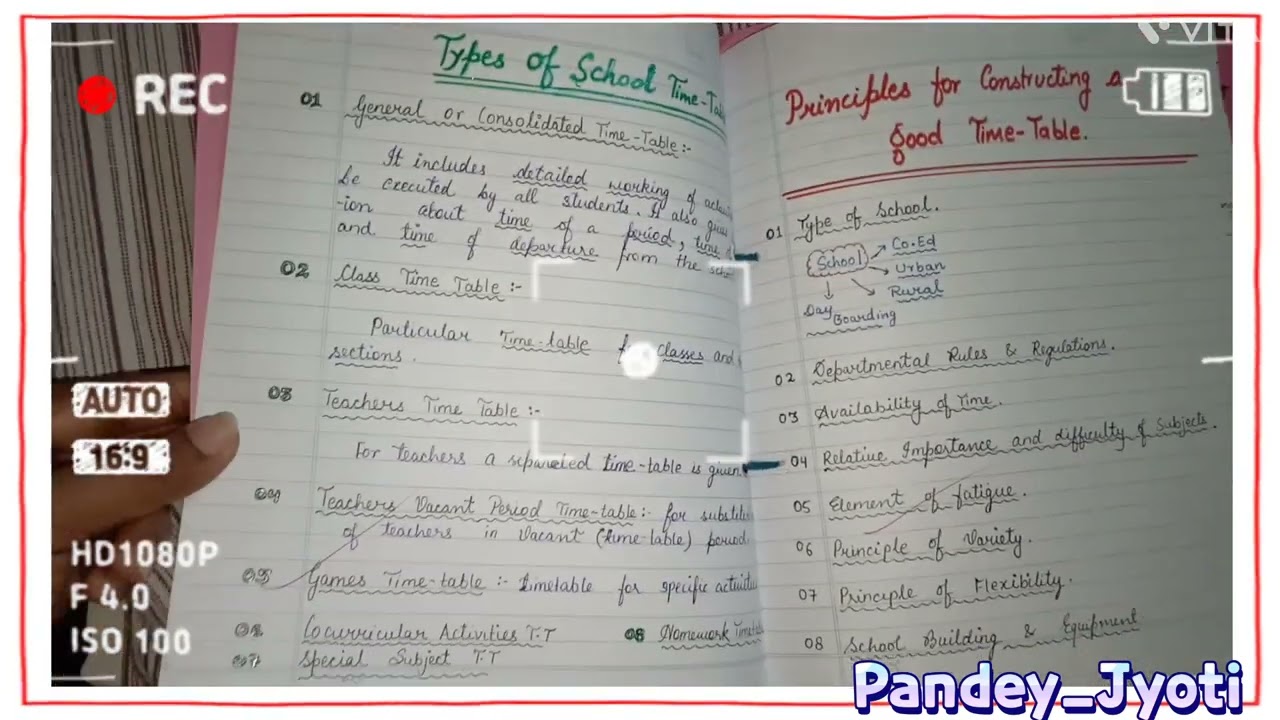 REC
AUTO
16:9
HD1080P
F 4.0
ISO 100
Types of School Time-
01 General or Consolidated Time-Table:-
It includes detailed working of
be executed by all students. It also
-ion about time of a period, time
and time of departure from the
02 Class Time Table :-
Particular Time-table classes and
sections.
03 Teachers Time Table :-
For teachers a separeted time-table is given
04 Teachers Vacant Period Time-table:- for
of teachers in vacant (time-table) period
05 Games Time-table :- timetable for specific
Cocurricular Activities T.T 08 Homework
07 Special Subject T.T
Principles for Constructing a
good Time-Table.
01 Type of School.
School Co.Ed
Urban
Rural
Day Boarding
02 Departmental Rules & Regulations.
03 Availability of Time.
04 Relative Importance and difficulty of Subjects.
05 Element of fatigue.
06 Principle of Variety.
07 Principle of Flexibility.
08 School Building & Equipment
Pandey_Jyoti